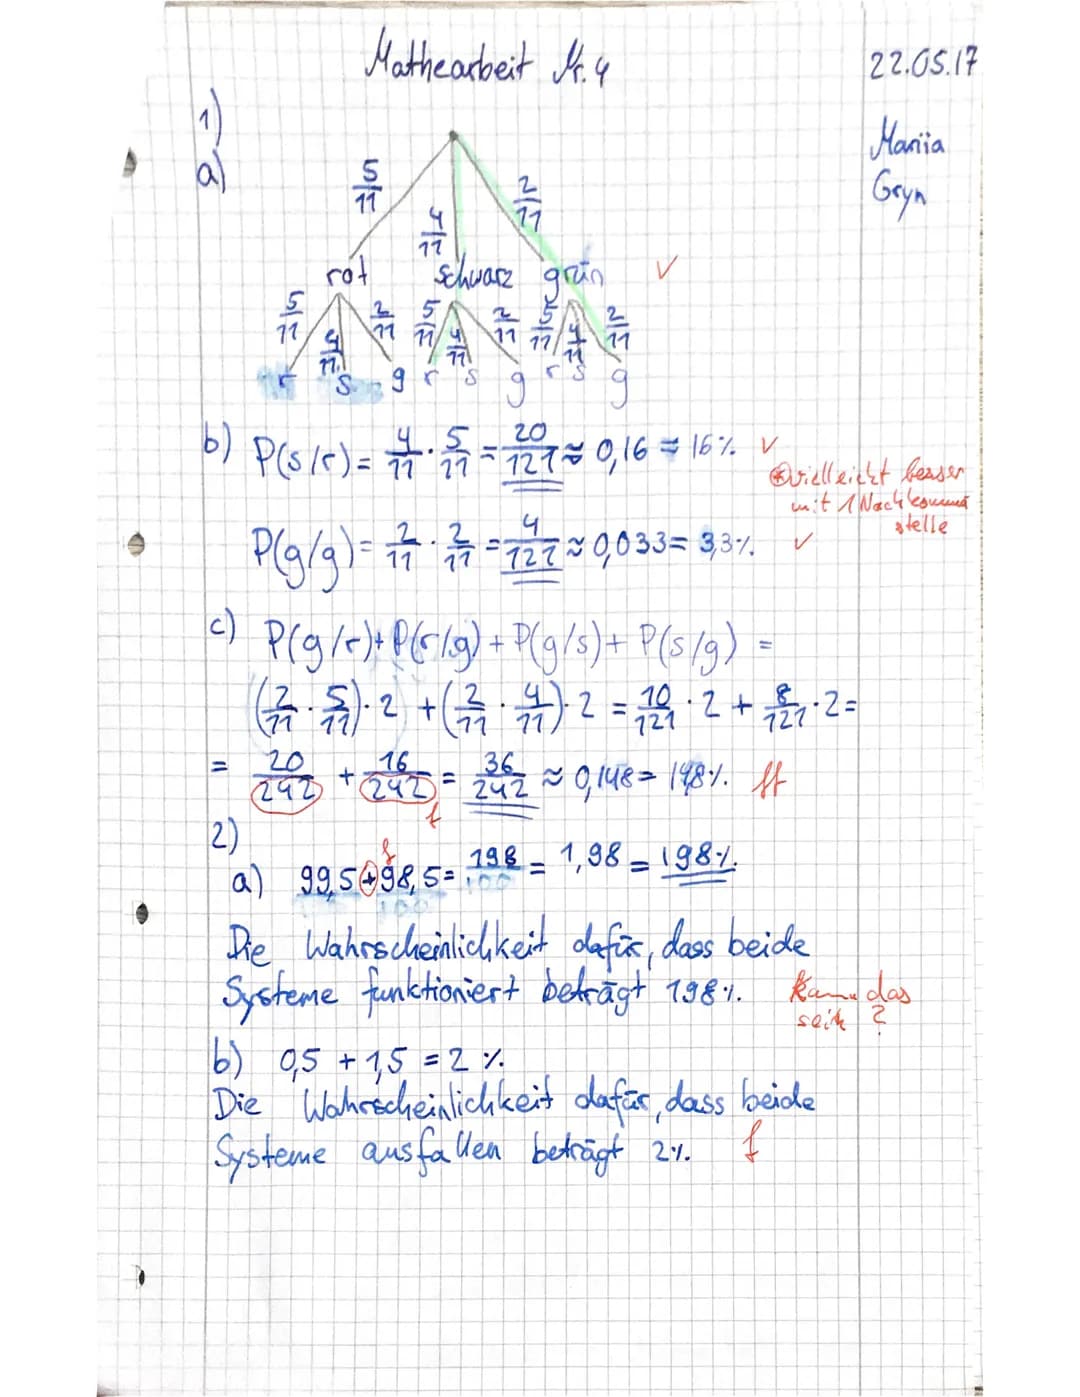 Mathearbeit Nr. 4 22.05.17
1) Mariia
a) Gryn
5/11 4/11 2/11
rot schwarz grün ✓
5/11 4/11 2/11 5/11 4/11 2/11 5/11 4/11 2/11
r s g r s g r s g
b) P(s/r) = 4/11 · 5/11 = 20/121 ≈ 0,16 = 16% ✓
vielleicht besser
mit 1 Nachkomma
stelle
P(g/g) = 2/11 · 2/11 = 4/121 ≈ 0,033 = 3,3% ✓
c) P(g/r) + P(r/g) + P(g/s) + P(s/g) =
(2/11 · 5/11) · 2 + (2/11 · 4/11) · 2 = 10/121 · 2 + 8/121 · 2 =
= 20/242 + 16/242 = 36/242 ≈ 0,148 = 14,8% ff
f
2)
f
a) 99,5 + 98,5 = 198/100 = 1,98 = 198%
Die Wahrscheinlichkeit dafür, dass beide
Systeme funktioniert beträgt 198%. Kann das
sein ?
b) 0,5 + 1,5 = 2 %
Die Wahrscheinlichkeit dafür, dass beide
Systeme ausfallen beträgt 2%. f